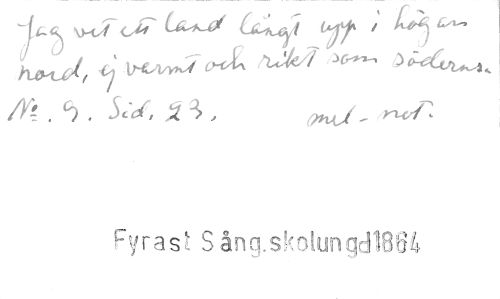 Jag vet ett land långt upp i högan
nord, ej varmt och rikt som söderns.
No. 9. Sid. 23. mel-not.
Fyrast Sång.skolungd1864